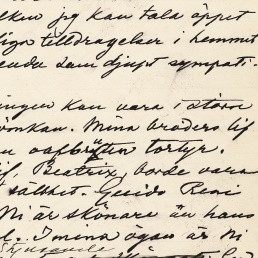 ilken jag kan tala öppet
lign tilldragelser i hemmet
ende som djupt sympati-
ningen kan vara i större
önkan. Mina broders lif
n oafbruten tortyr.
if, Beatrix, borde vara
sällhet. Guido Reni
Ni är skönare än hans
I mina ögon är ni